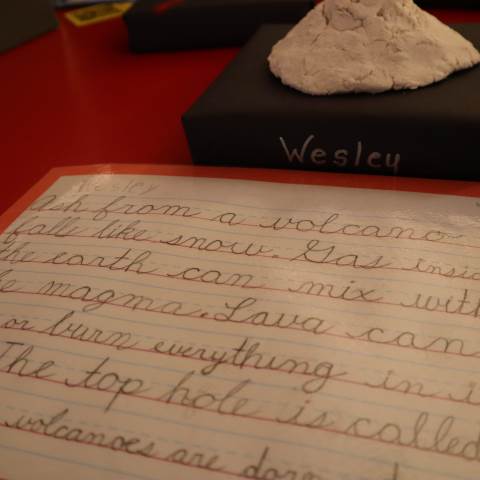 Wesley
Wesley
Ash from a volcano
falls like snow. Gas insi
the earth can mix with
magma. Lava can
or burn everything in i
The top hole is called
volcanoes are dorm